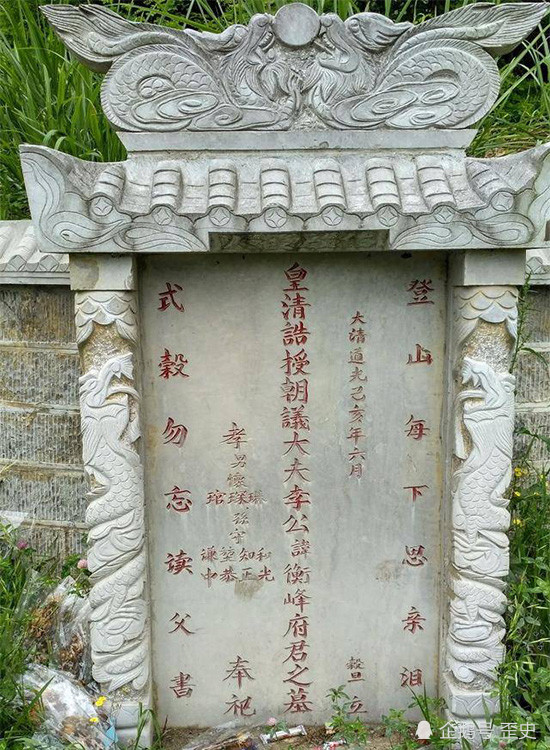 登山每下思亲泪
大清道光己亥年六月
穀旦立
皇清誥授朝議大夫李公諱衡峰府君之墓
孝男懷
孫
和知谦
光正恭中
奉祀
式穀勿忘读父書
企鹅号 歪史